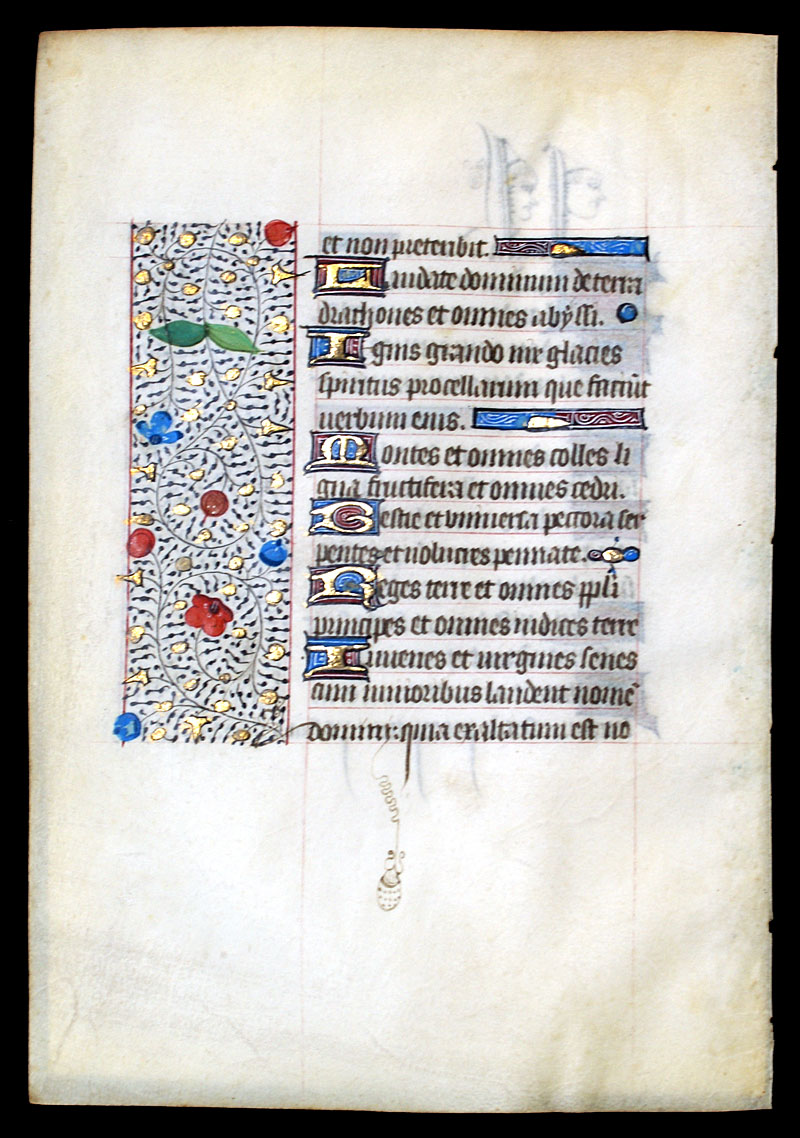 et non preteribit.
Laudate dominum de terra
drachones et omnes abyssi.
Ignis grando nix glacies
spiritus procellarum que faciūt
uerbum eius.
Montes et omnes colles li
gna fructifera et omnes cedri.
Bestie et vniuersa peccora ser
pentes et uolucres pennate.
Reges terre et omnes ppli
principes et omnes iudices terre
Iuuenes et uirgines senes
cum iunioribus laudent nomē
domini: quia exaltatum est no